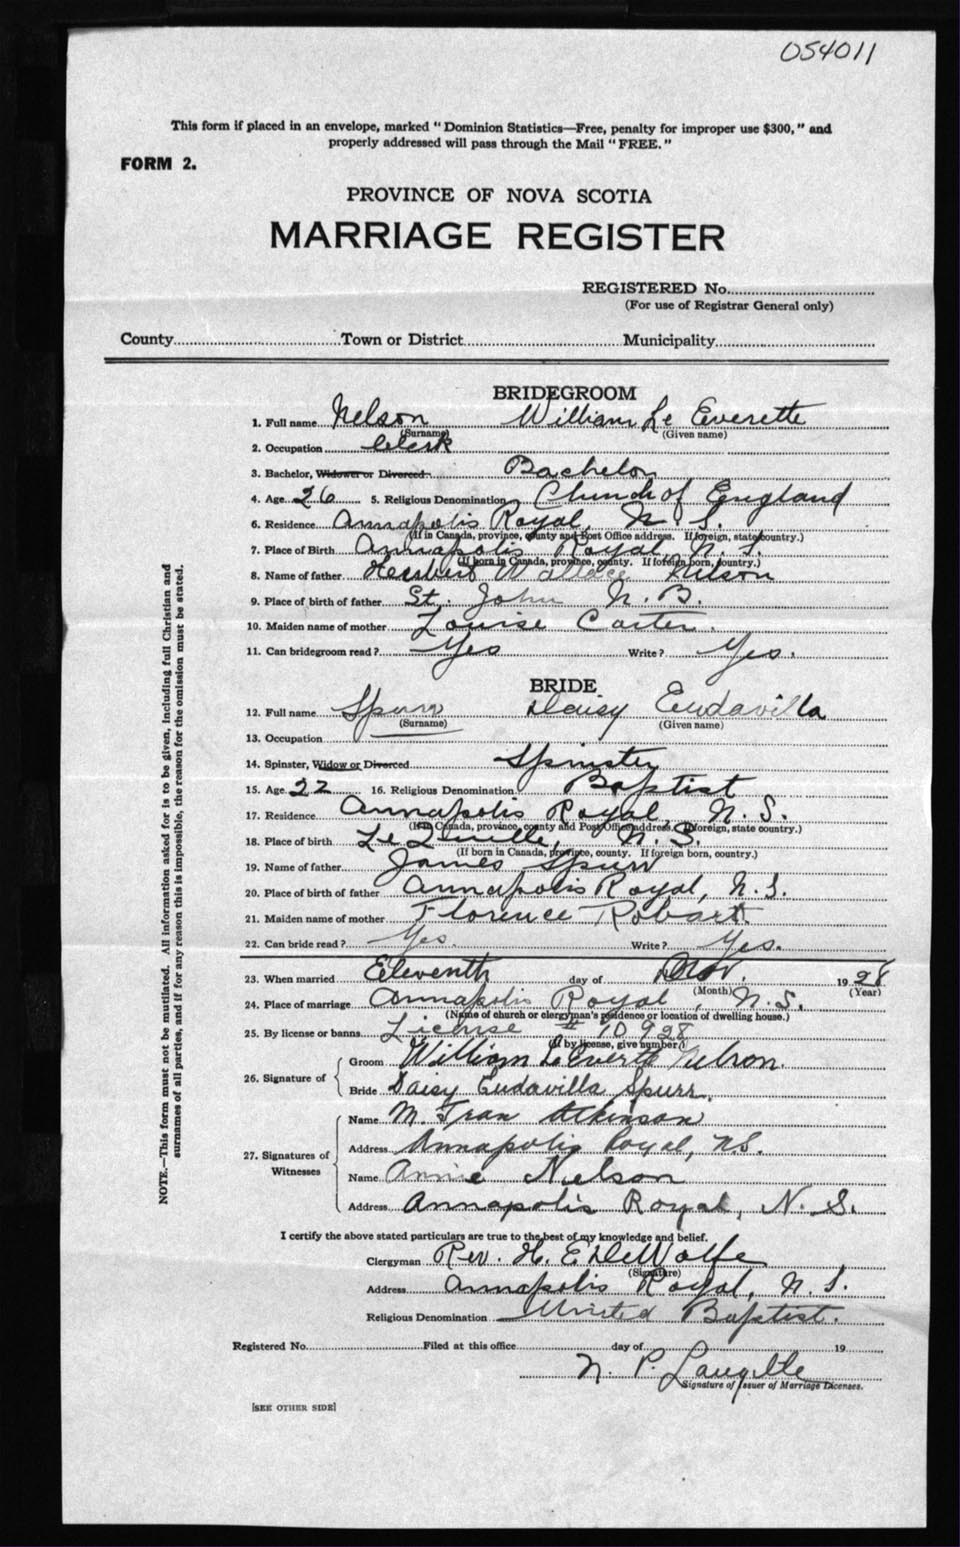 054011
This form if placed in an envelope, marked "Dominion Statistics—Free, penalty for improper use $300," and
properly addressed will pass through the Mail "FREE."
FORM 2.
PROVINCE OF NOVA SCOTIA
MARRIAGE REGISTER
REGISTERED No.
(For use of Registrar General only)
County Town or District Municipality
BRIDEGROOM
1. Full name Nelson William Le Everette
(Surname) (Given name)
2. Occupation Clerk
3. Bachelor, Widower or Divorced Bachelor
4. Age 26 5. Religious Denomination Church of England
6. Residence Annapolis Royal, N. S.
(If in Canada, province, county and Post Office address. If foreign, state country.)
7. Place of Birth Annapolis Royal, N. S.
(If born in Canada, province, county. If foreign born, country.)
8. Name of father Herbert Wallace Nelson
9. Place of birth of father St. John N. B.
10. Maiden name of mother Louise Carter.
11. Can bridegroom read? Yes Write? Yes.
BRIDE
12. Full name Spurr Daisy Eudavilla
(Surname) (Given name)
13. Occupation
14. Spinster, Widow or Divorced Spinster
15. Age 22 16. Religious Denomination Baptist
17. Residence Annapolis Royal, N. S.
(If in Canada, province, county and Post Office address. If foreign, state country.)
18. Place of birth LeQuille, N. S.
(If born in Canada, province, county. If foreign born, country.)
19. Name of father James Spurr
20. Place of birth of father Annapolis Royal, N. S.
21. Maiden name of mother Florence Robart.
22. Can bride read? Yes. Write? Yes.
23. When married Eleventh day of Nov. 1928
(Month) (Year)
24. Place of marriage Annapolis Royal, N. S.
(Name of church or clergyman's residence or location of dwelling house.)
25. By license or banns License # 10928
(If by license, give number.)
26. Signature of Groom William LeEverte Nelson.
Bride Daisy Eudavilla Spurr.
27. Signatures of Witnesses Name M. Fran Atkinson
Address Annapolis Royal, N.S.
Name Annie Nelson
Address Annapolis Royal, N. S.
I certify the above stated particulars are true to the best of my knowledge and belief.
Clergyman Rev. H. E. DeWolfe
(Signature)
Address Annapolis Royal, N. S.
Religious Denomination United Baptist.
Registered No. Filed at this office day of 19
N. P.
Signature of Issuer of Marriage Licenses.
[SEE OTHER SIDE]
NOTE.—This form must not be mutilated. All information asked for is to be given, including full Christian and
surnames of all parties, and if for any reason this is impossible, the reason for the omission must be stated.